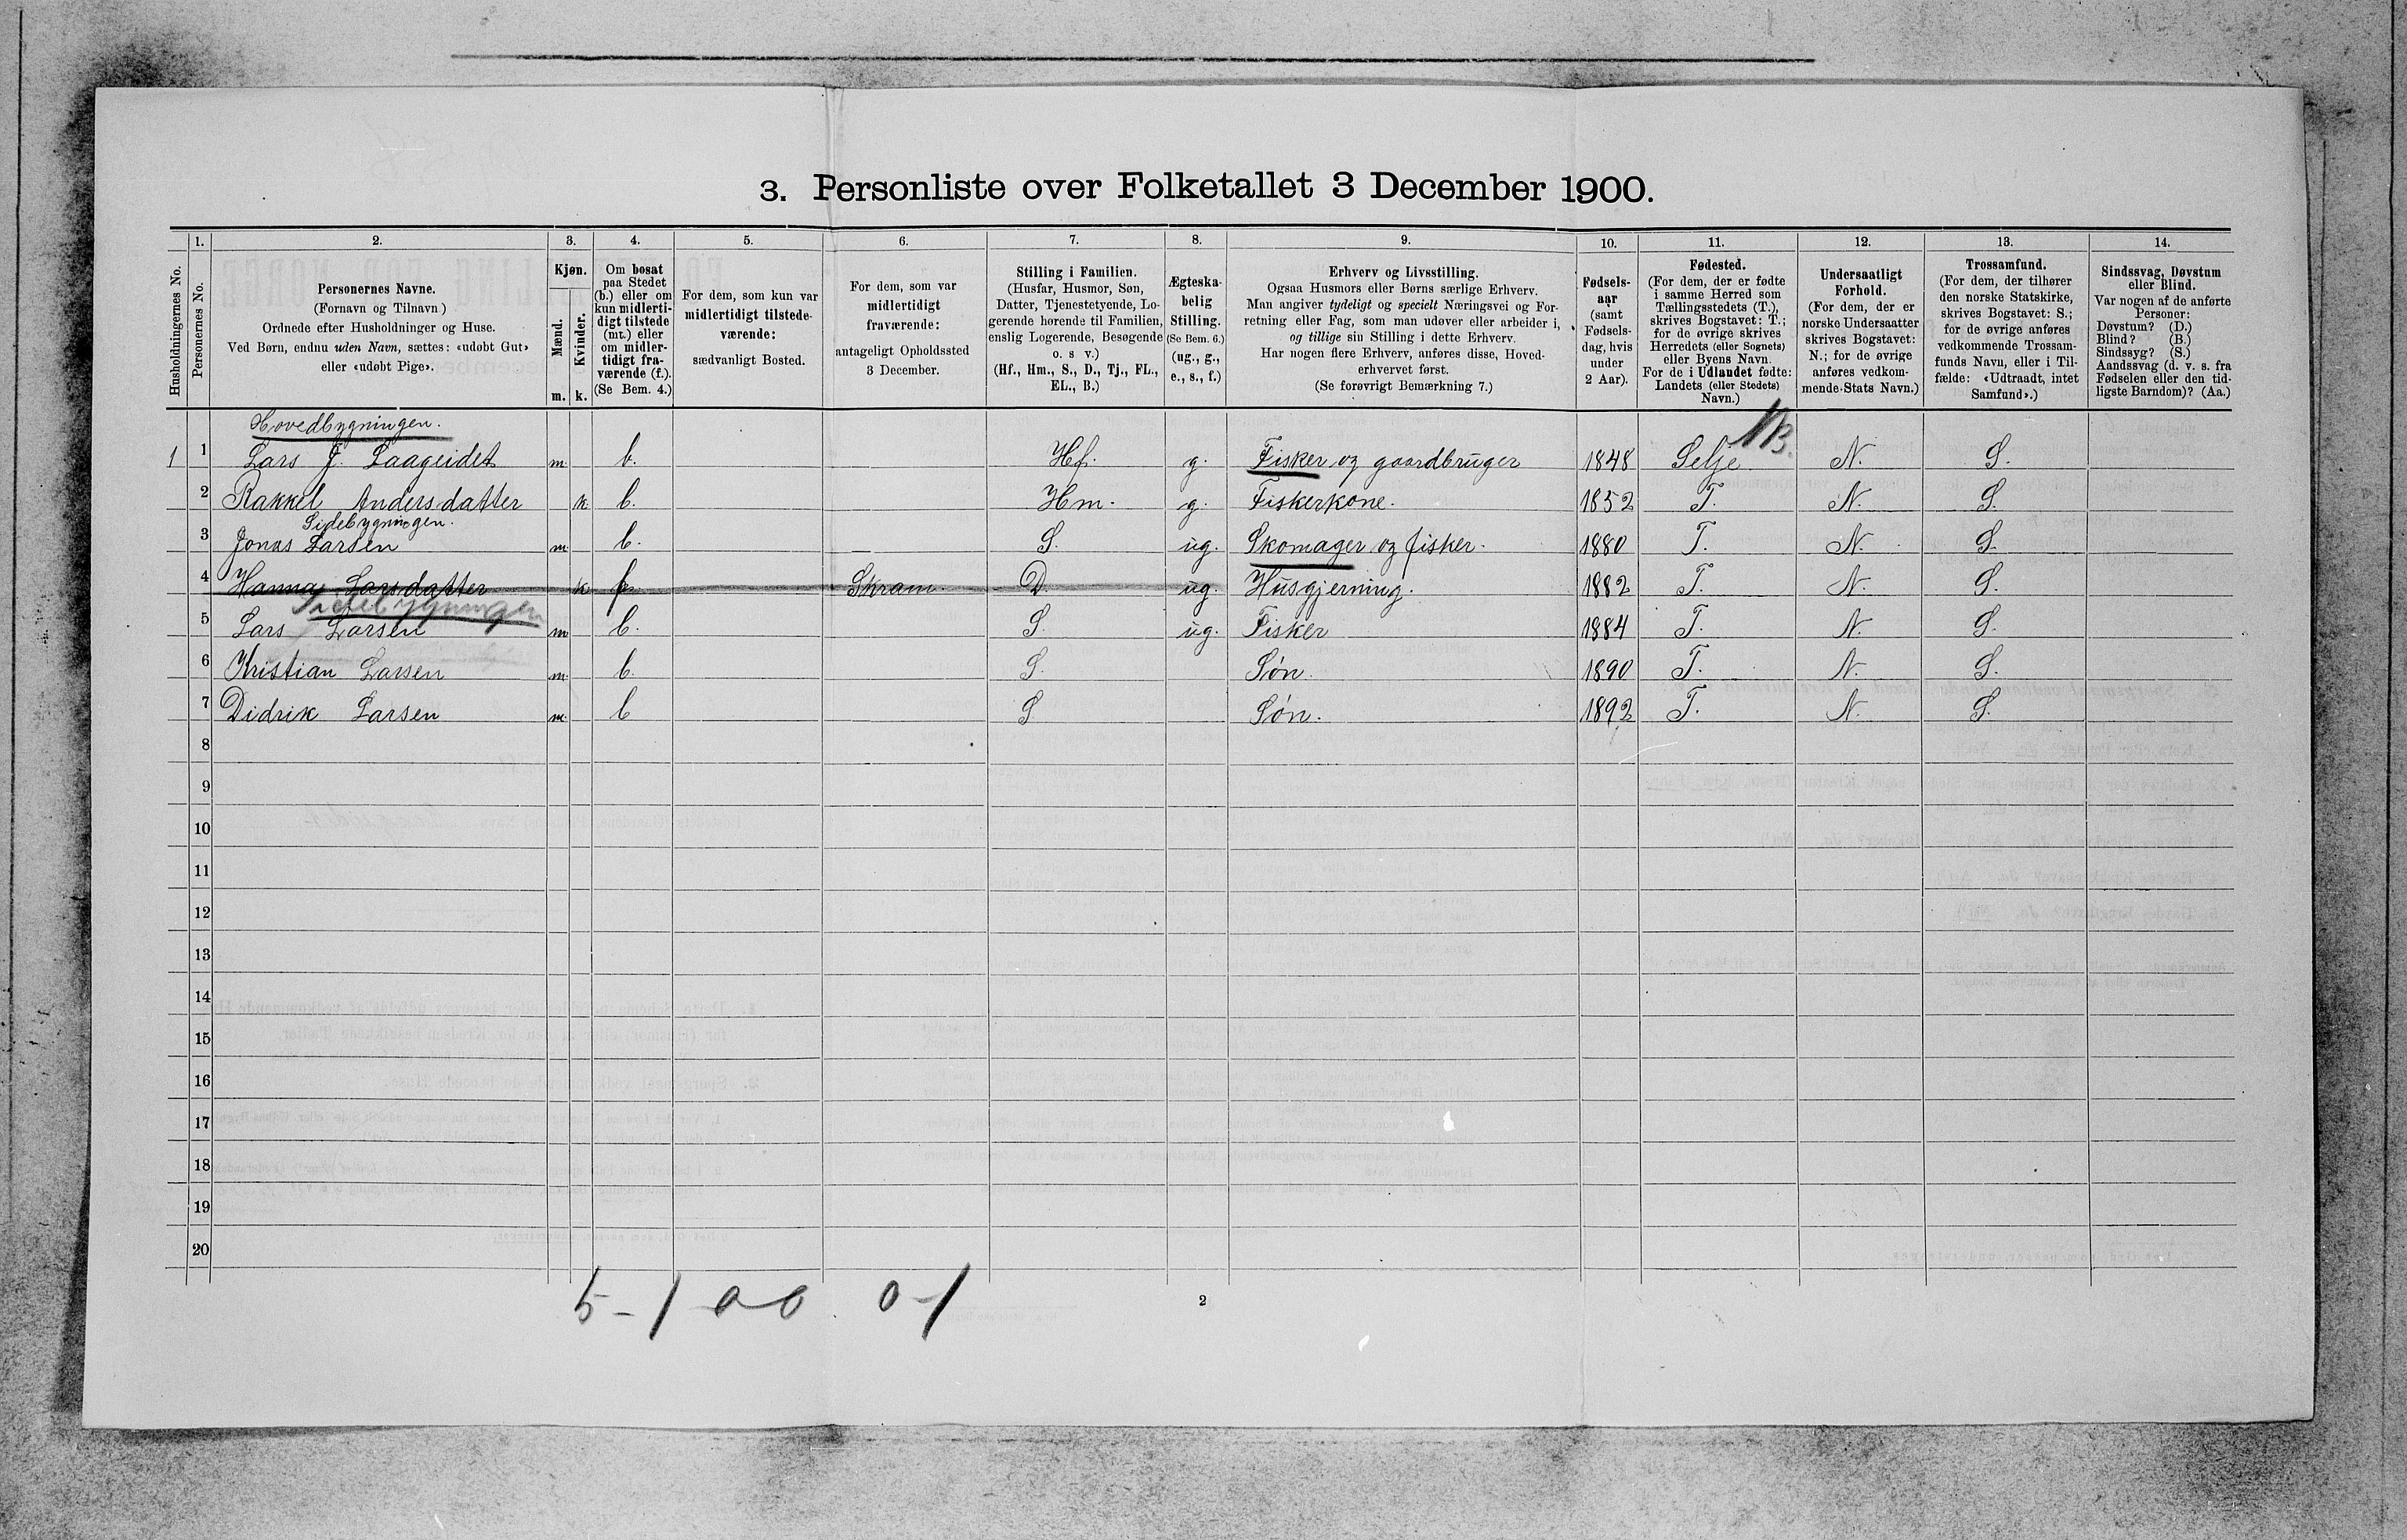 3. Personliste over Folketallet 3 December 1900.
1. 2. 3. 4. 5. 6. 7. 8. 9. 10. 11. 12. 13. 14.
Husholdningernes No.
Personernes No.
Personernes Navne.
(Fornavn og Tilnavn)
Ordnede efter Husholdninger og Huse.
Ved Børn, endnu uden Navn, sættes: «udøbt Gut»
eller «udøbt Pige».
Kjøn.
Mænd.
Kvinder.
m. k.
Om bosat
paa Stedet
(b.) eller om
kun midlerti-
digt tilstede
(mt.) eller
om midler-
tidigt fra-
værende (f.).
(Se Bem. 4.)
For dem, som kun var
midlertidigt tilstede-
værende:
sædvanligt Bosted.
For dem, som var
midlertidigt
fraværende:
antageligt Opholdssted
3 December.
Stilling i Familien.
(Husfar, Husmor, Søn,
Datter, Tjenestetyende, Lo-
gerende hørende til Familien,
enslig Logerende, Besøgende
o. s v.)
(Hf., Hm., S., D., Tj., FL.,
EL., B.)
Ægteska-
belig
Stilling.
(Se Bem. 6.)
(ug., g.,
e., s., f.)
Erhverv og Livsstilling.
Ogsaa Husmors eller Børns særlige Erhverv.
Man angiver tydeligt og specielt Næringsvei og For-
retning eller Fag, som man udøver eller arbeider i,
og tillige sin Stilling i dette Erhverv.
Har nogen flere Erhverv, anføres disse, Hoved-
erhvervet først.
(Se forøvrigt Bemærkning 7.)
Fødsels-
aar
(samt
Fødsels-
dag, hvis
under
2 Aar).
Fødested.
(For dem, der er fødte
i samme Herred som
Tællingsstedets (T.),
skrives Bogstavet: T.;
for de øvrige skrives
Herredets (eller Sognets)
eller Byens Navn.
For de i Udlandet fødte:
Landets (eller Stedets)
Navn.)
Undersaatligt
Forhold.
(For dem, der er
norske Undersaatter
skrives Bogstavet:
N.; for de øvrige
anføres vedkom-
mende Stats Navn.)
Trossamfund.
(For dem, der tilhører
den norske Statskirke,
skrives Bogstavet: S.;
for de øvrige anføres
vedkommende Trossam-
funds Navn, eller i Til-
fælde: «Udtraadt, intet
Samfund».)
Sindssvag, Døvstum
eller Blind.
Var nogen af de anførte
Personer:
Døvstum? (D.)
Blind? (B.)
Sindssyg? (S.)
Aandssvag (d. v. s. fra
Fødselen eller den tid-
ligste Barndom)? (Aa.)
Hovedbygningen.
1 1 Lars J. Laageidet m. b. Hf. g. Fisker og gaardbruger 1848 Selje N. S.
2 Rakkel Andersdatter k b. Hm. g. Fiskerkone. 1852 T. N. S.
Sidebygningen.
3 Jonas Larsen m. b. S. ug. Skomager og fisker. 1880 T. N. S.
4 Hanna Larsdatter k f. Skram. D. ug. Husgjerning. 1882 T. N. S.
Sidebygningen
5 Lars Larsen m b. S. ug. Fisker 1884 T. N. S.
6 Kristian Larsen m. b. S. Søn. 1890 T. N. S.
7 Didrik Larsen m. b S Søn. 1892 T. N. S.
8
9
10
11
12
13
14
15
16
17
18
19
20
5-1 00 0-1
2